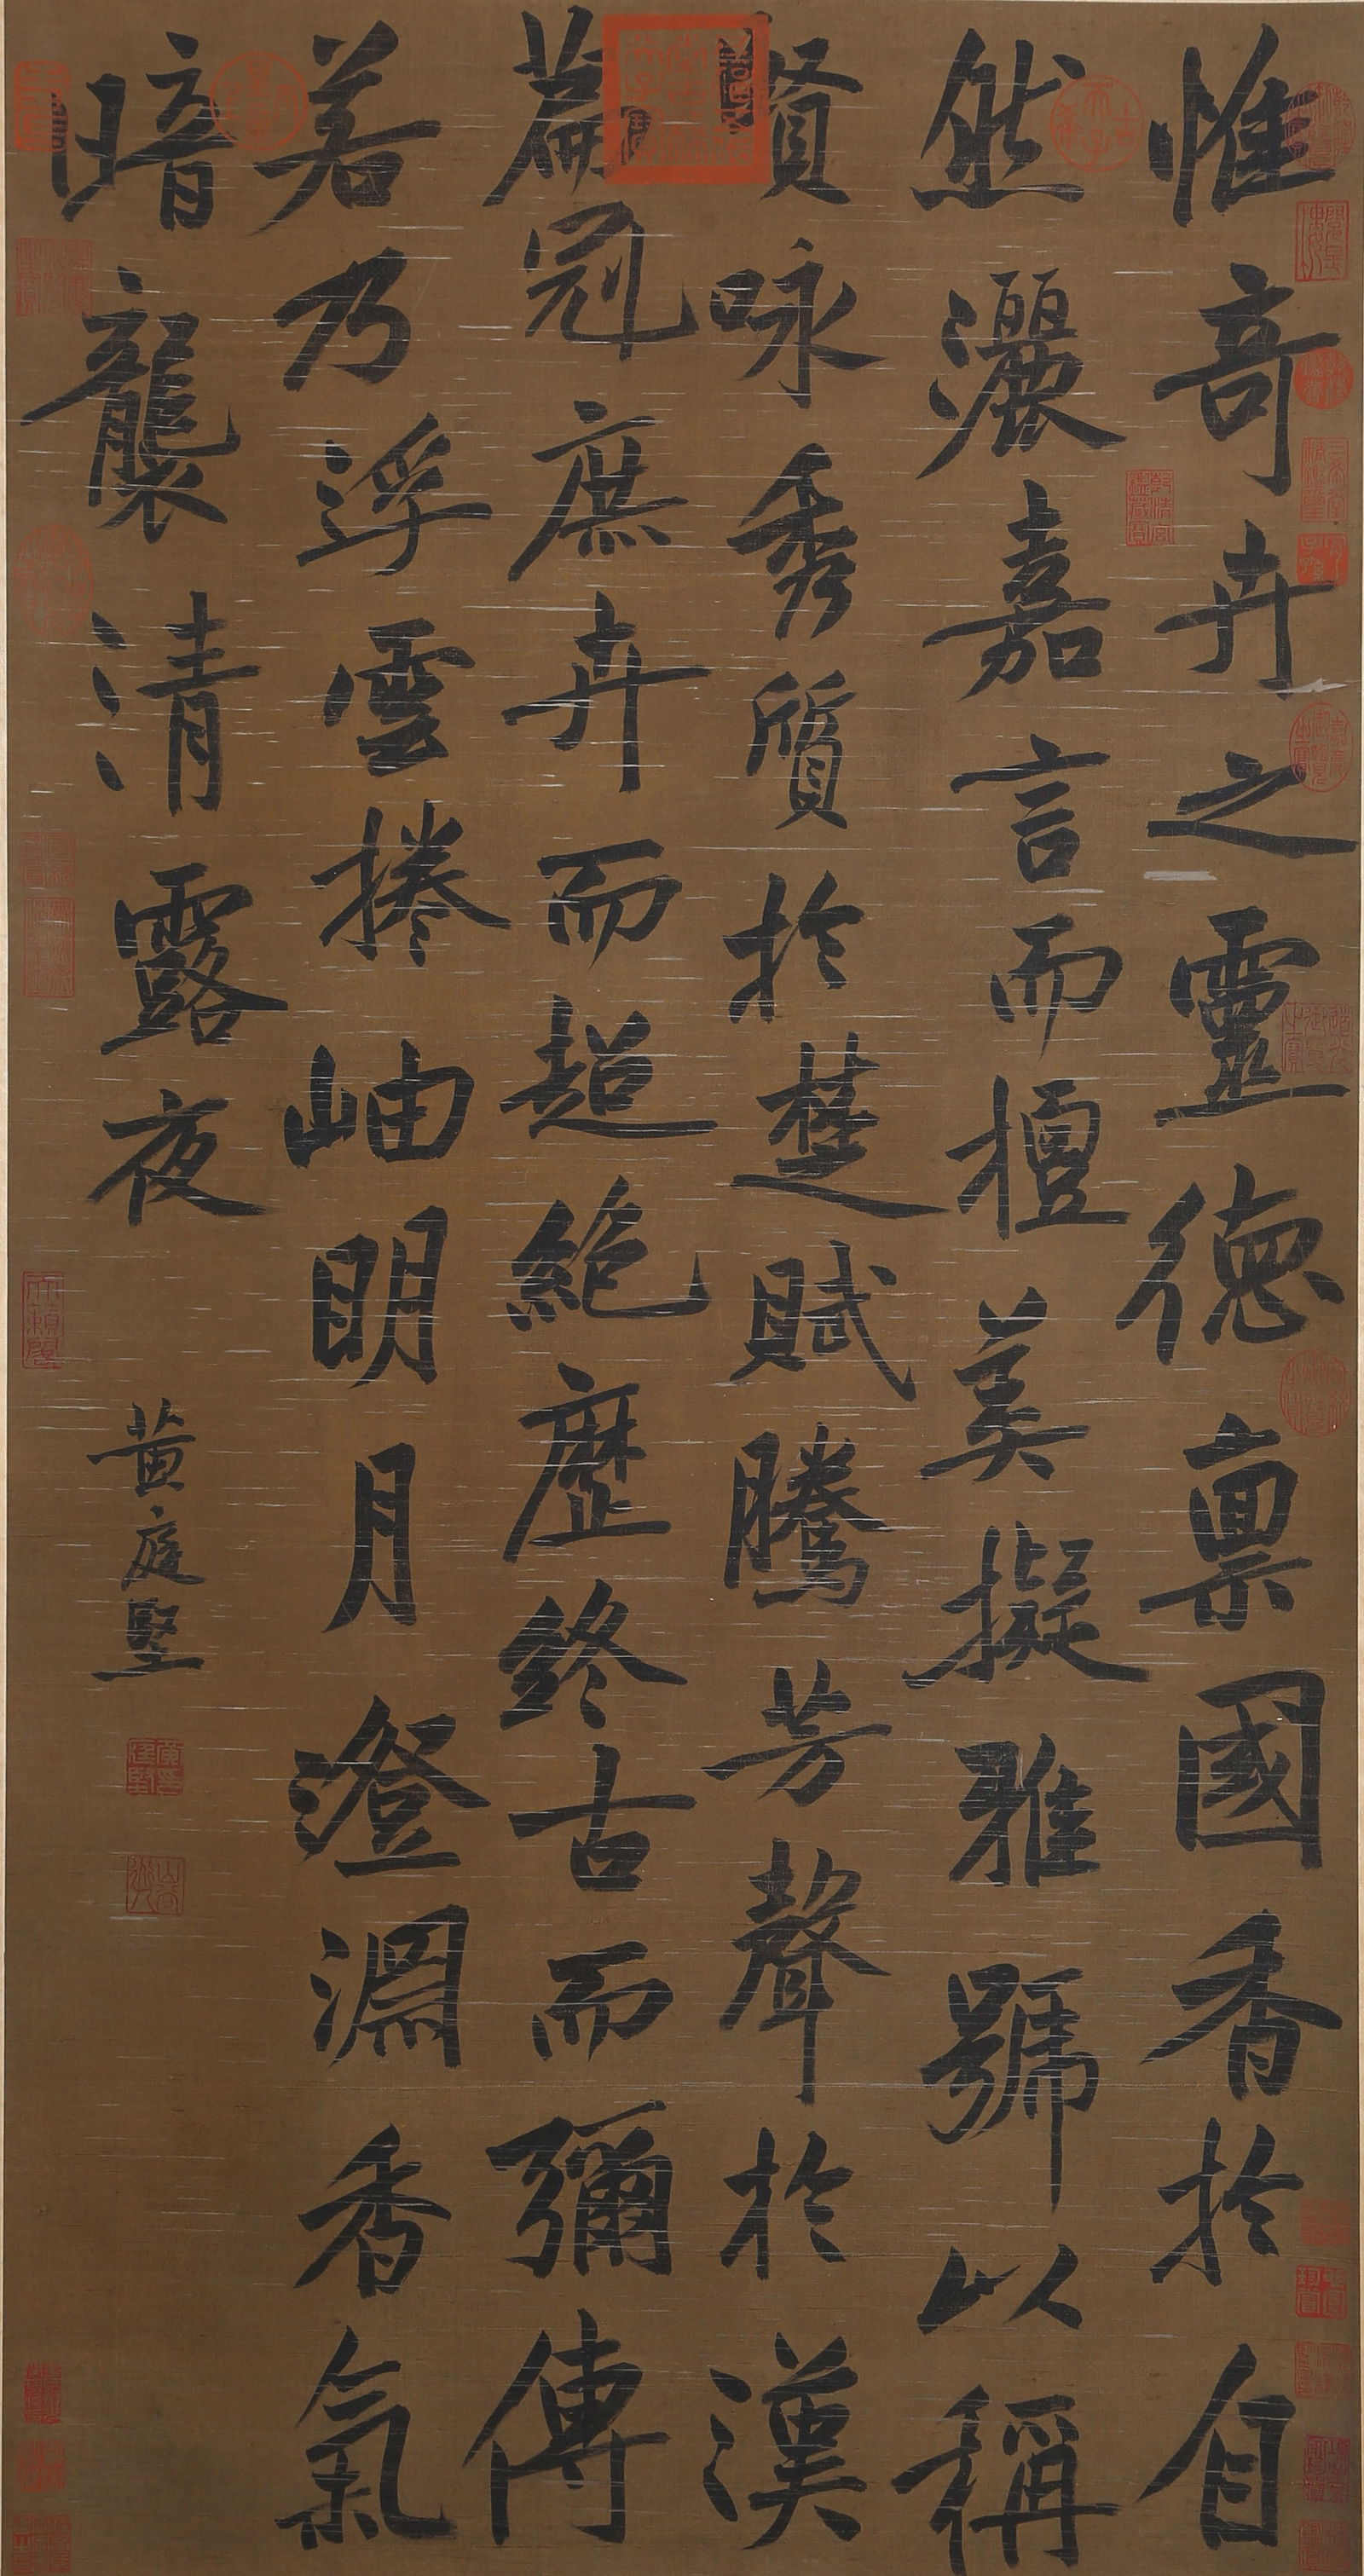 惟奇卉之靈德稟國香於自
然灑嘉言而擅美擬雅號以稱
賢咏秀質於楚賦騰芳聲於漢
篇冠庶卉而超絕歷終古而彌傳
若乃浮雲捲岫明月澄淵香氣
暗襲清露夜
黃庭堅